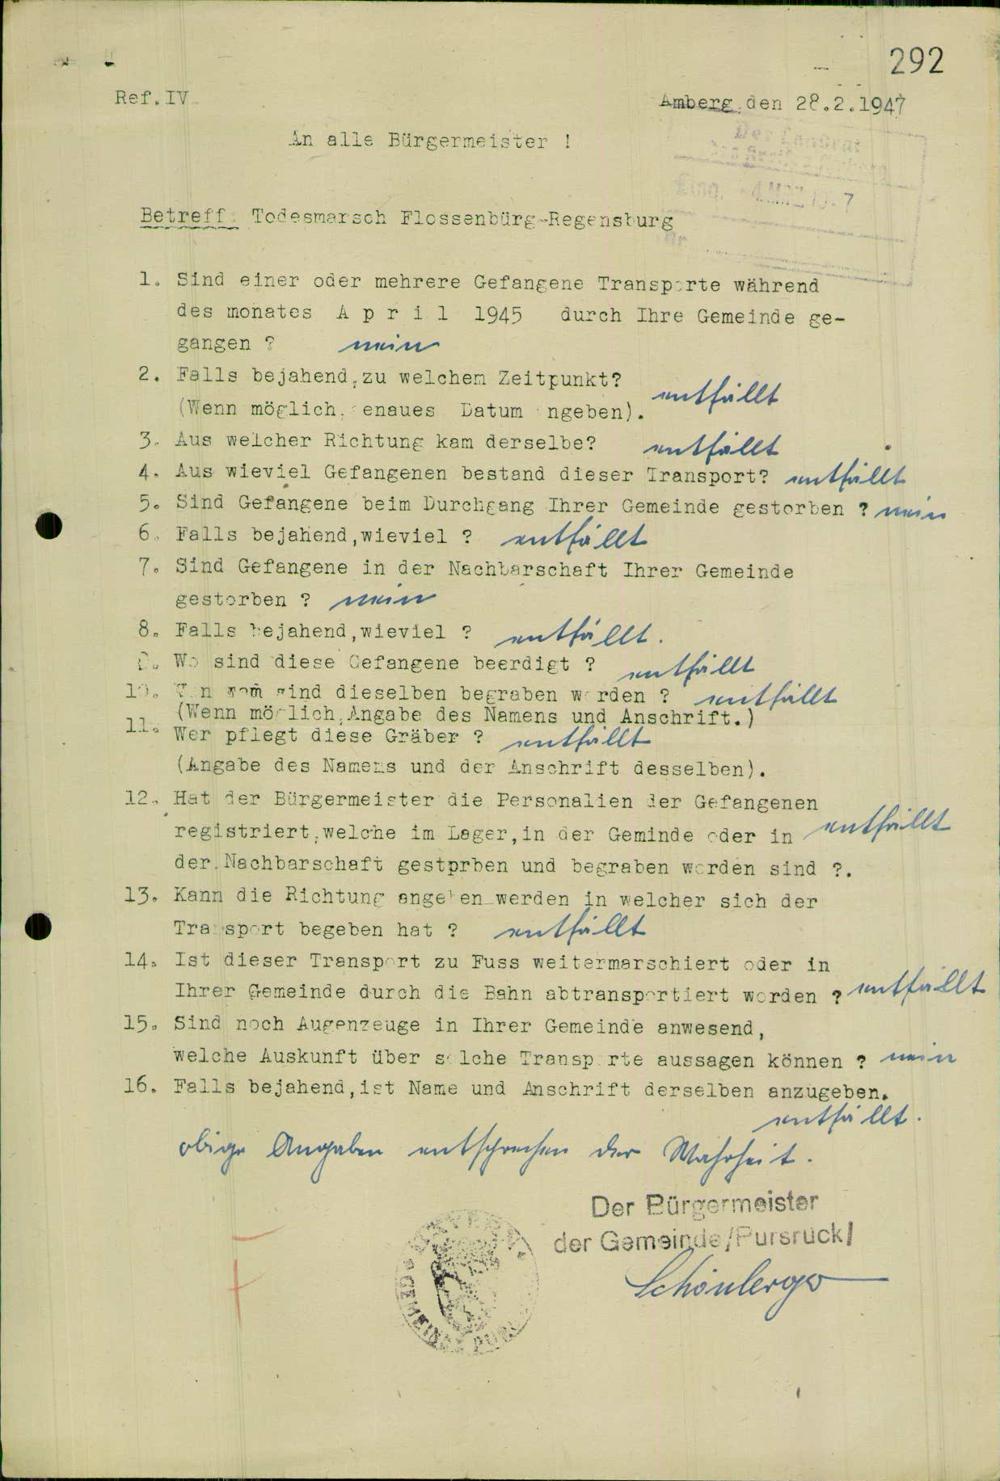 292
Ref. IV
Amberg, den 28.2.1947
An alle Bürgermeister !
Der Landrat
Eing. 4. MRZ. 1947
Nr.
Betreff: Todesmarsch Flossenbürg-Regensburg
1. Sind einer oder mehrere Gefangene Transporte während
des monates A p r i l 1945 durch Ihre Gemeinde ge-
gangen ? nein
2. Falls bejahend, zu welchem Zeitpunkt?
(Wenn möglich, genaues Datum angeben). entfällt
3. Aus welcher Richtung kam derselbe? entfällt
4. Aus wieviel Gefangenen bestand dieser Transport? entfällt
5. Sind Gefangene beim Durchgang Ihrer Gemeinde gestorben ? nein
6. Falls bejahend,wieviel ? entfällt
7. Sind Gefangene in der Nachbarschaft Ihrer Gemeinde
gestorben ? nein
8. Falls bejahend,wieviel ? entfällt.
9. Wo sind diese Gefangene beerdigt ? entfällt
10. Von wem sind dieselben begraben worden ? entfällt
(Wenn möglich,Angabe des Namens und Anschrift.)
11. Wer pflegt diese Gräber ? entfällt
(Angabe des Namens und der Anschrift desselben).
12. Hat der Bürgermeister die Personalien der Gefangenen
registriert,welche im Lager,in der Geminde oder in entfällt
der Nachbarschaft gestprben und begraben worden sind ?.
13. Kann die Richtung angeben werden in welcher sich der
Transport begeben hat ? entfällt
14. Ist dieser Transport zu Fuss weitermarschiert oder in
Ihrer Gemeinde durch die Bahn abtransportiert worden ? entfällt
15. Sind noch Augenzeuge in Ihrer Gemeinde anwesend,
welche Auskunft über solche Transporte aussagen können ? nein
16. Falls bejahend,ist Name und Anschrift derselben anzugeben.
entfällt.
obige Angaben entsprechen der Wahrheit.
Der Bürgermeister
der Gemeinde/Pursruck/
Schönberger
BAYERN
GEMEINDE